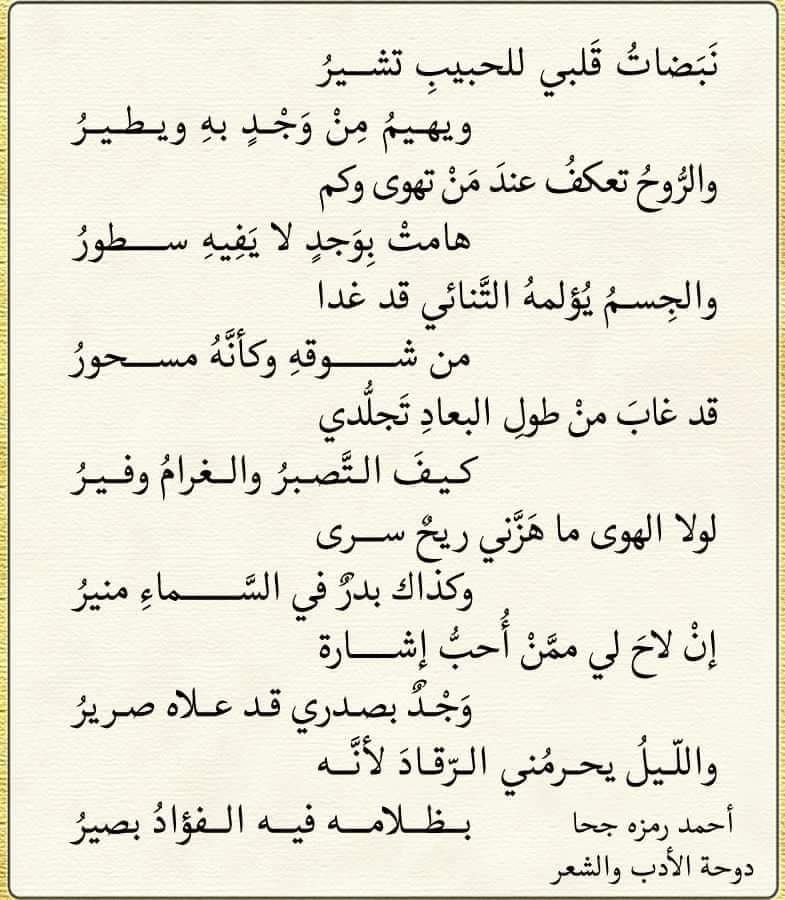 نَبَضاتُ قَلبي للحبيبِ تشـــيرُ
ويهـيمُ مِنْ وَجْـدٍ بهِ ويـطـيـرُ
والرُّوحُ تعكفُ عندَ مَنْ تهوى وكم
هامتْ بِوَجدٍ لا يَفِيهِ ســــطورُ
والجِسـمُ يُؤلمهُ التَّنائي قد غدا
من شـــــــوقهِ وكأنَّهُ مســــحورُ
قد غابَ منْ طولِ البعادِ تَجلُّدي
كـيـفَ الـتَّصـبرُ والـغرامُ وفـيـرُ
لولا الهوى ما هَزَّني ريحٌ ســـرى
وكذاك بدرٌ في السَّـــــــماءِ منيرُ
إنْ لاحَ لي ممَّنْ أُحبُّ إشـــــارة
وَجْـدٌ بصـدري قـد عـلاه صـريرُ
واللّـيلُ يحـرمُني الـرّقـادَ لأنَّـــه
بـــظـــلامـــه فيـــه الـــفؤادُ بصيرُ
أحمد رمزه جحا
دوحة الأدب والشعر